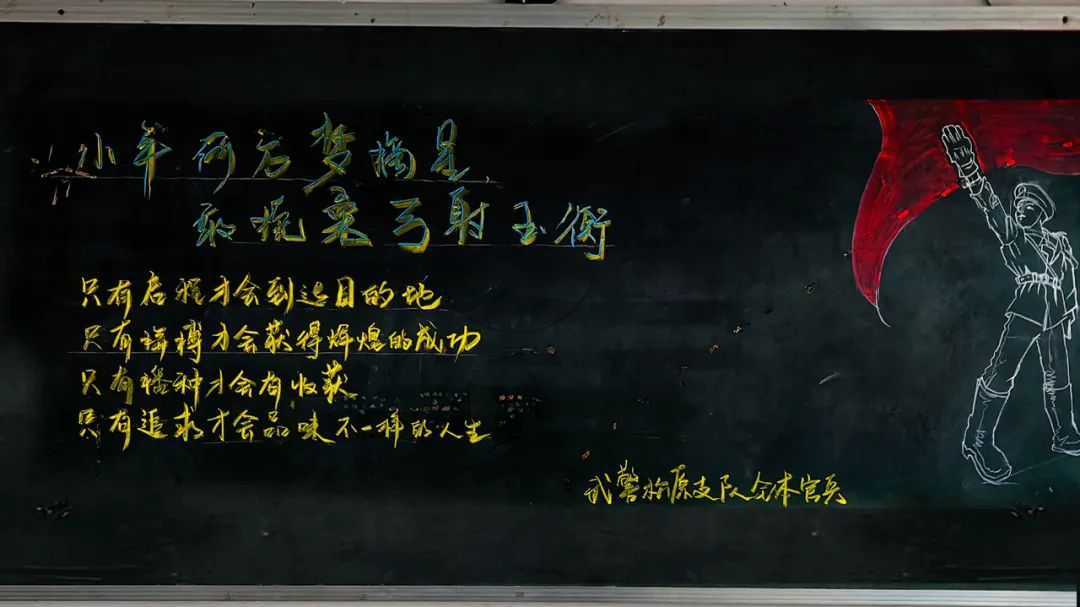 少年何方梦摘星
敢挽桑弓射玉衡
只有启程才会到达目的地
只有拼搏才会获得辉煌的成功
只有播种才会有收获
只有追求才会品味不一样的人生
武警松原支队全体官兵